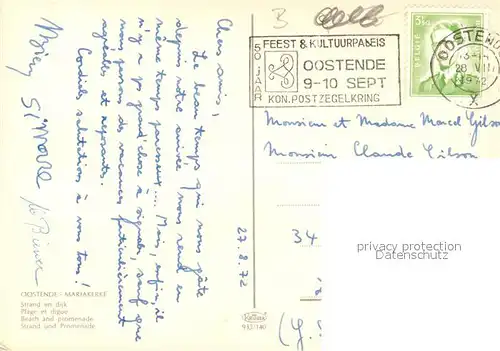 3
FEEST & KULTUURPALEIS
50 JAAR
OOSTENDE
9-10 SEPT
KON. POSTZEGELKRING
3F50
BELGIE
OOSTENDE
28 VIII
Chers amis,
Le beau temps qui nous gâte
depuis notre arrivée nous rend en
même temps paresseux.... Mais, enfin, il
n'y a pas grand'chose à signaler, sauf que
nous passons des vacances particulièrement
agréables et reposantes.
Cordiales salutations à vous tous!
27.8.72
Monsieur et Madame Marcel Gilson
Monsieur Claude Gilson
34
privacy protection
watermark
OOSTENDE - MARIAKERKE
Strand en dijk
Plage et digue
Beach and promenade
Strand und Promenade
932/140